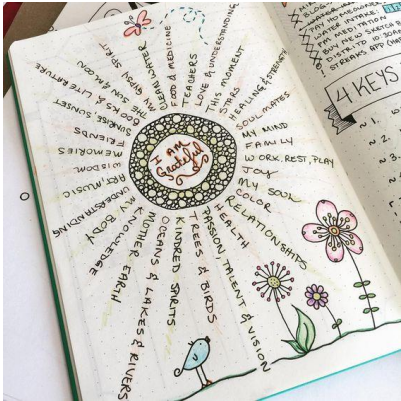 I AM
Grateful
MY DAUGHTER
FOOD & MEDICINE
TEACHERS
LOVE & UNDERSTANDING
THIS MOMENT
STARS
HEALING & STRENGTH
SOULMATES
MY MIND
FAMILY
WORK, REST, PLAY
JOY
MY SOUL
COLOR
RELATIONSHIPS
HEALTH
PASSION, TALENT & VISION
TREES & BIRDS
KINDRED SPIRITS
OCEANS & LAKES & RIVERS
MOTHER EARTH
KNOWLEDGE
MY BODY
UNDERSTANDING
ART, MUSIC
WISDOM
MEMORIES
FRIENDS
SUNRISE, SUNSET
BOOKS & LITERATURE
THE SUN & MOON
MY GYPSY SPIRIT
WATER INTAKE
MEDITATION
BUY NEW SKETCH B
4 KEYS
~ 1.
~ 2.
~ 3.
~ 4.